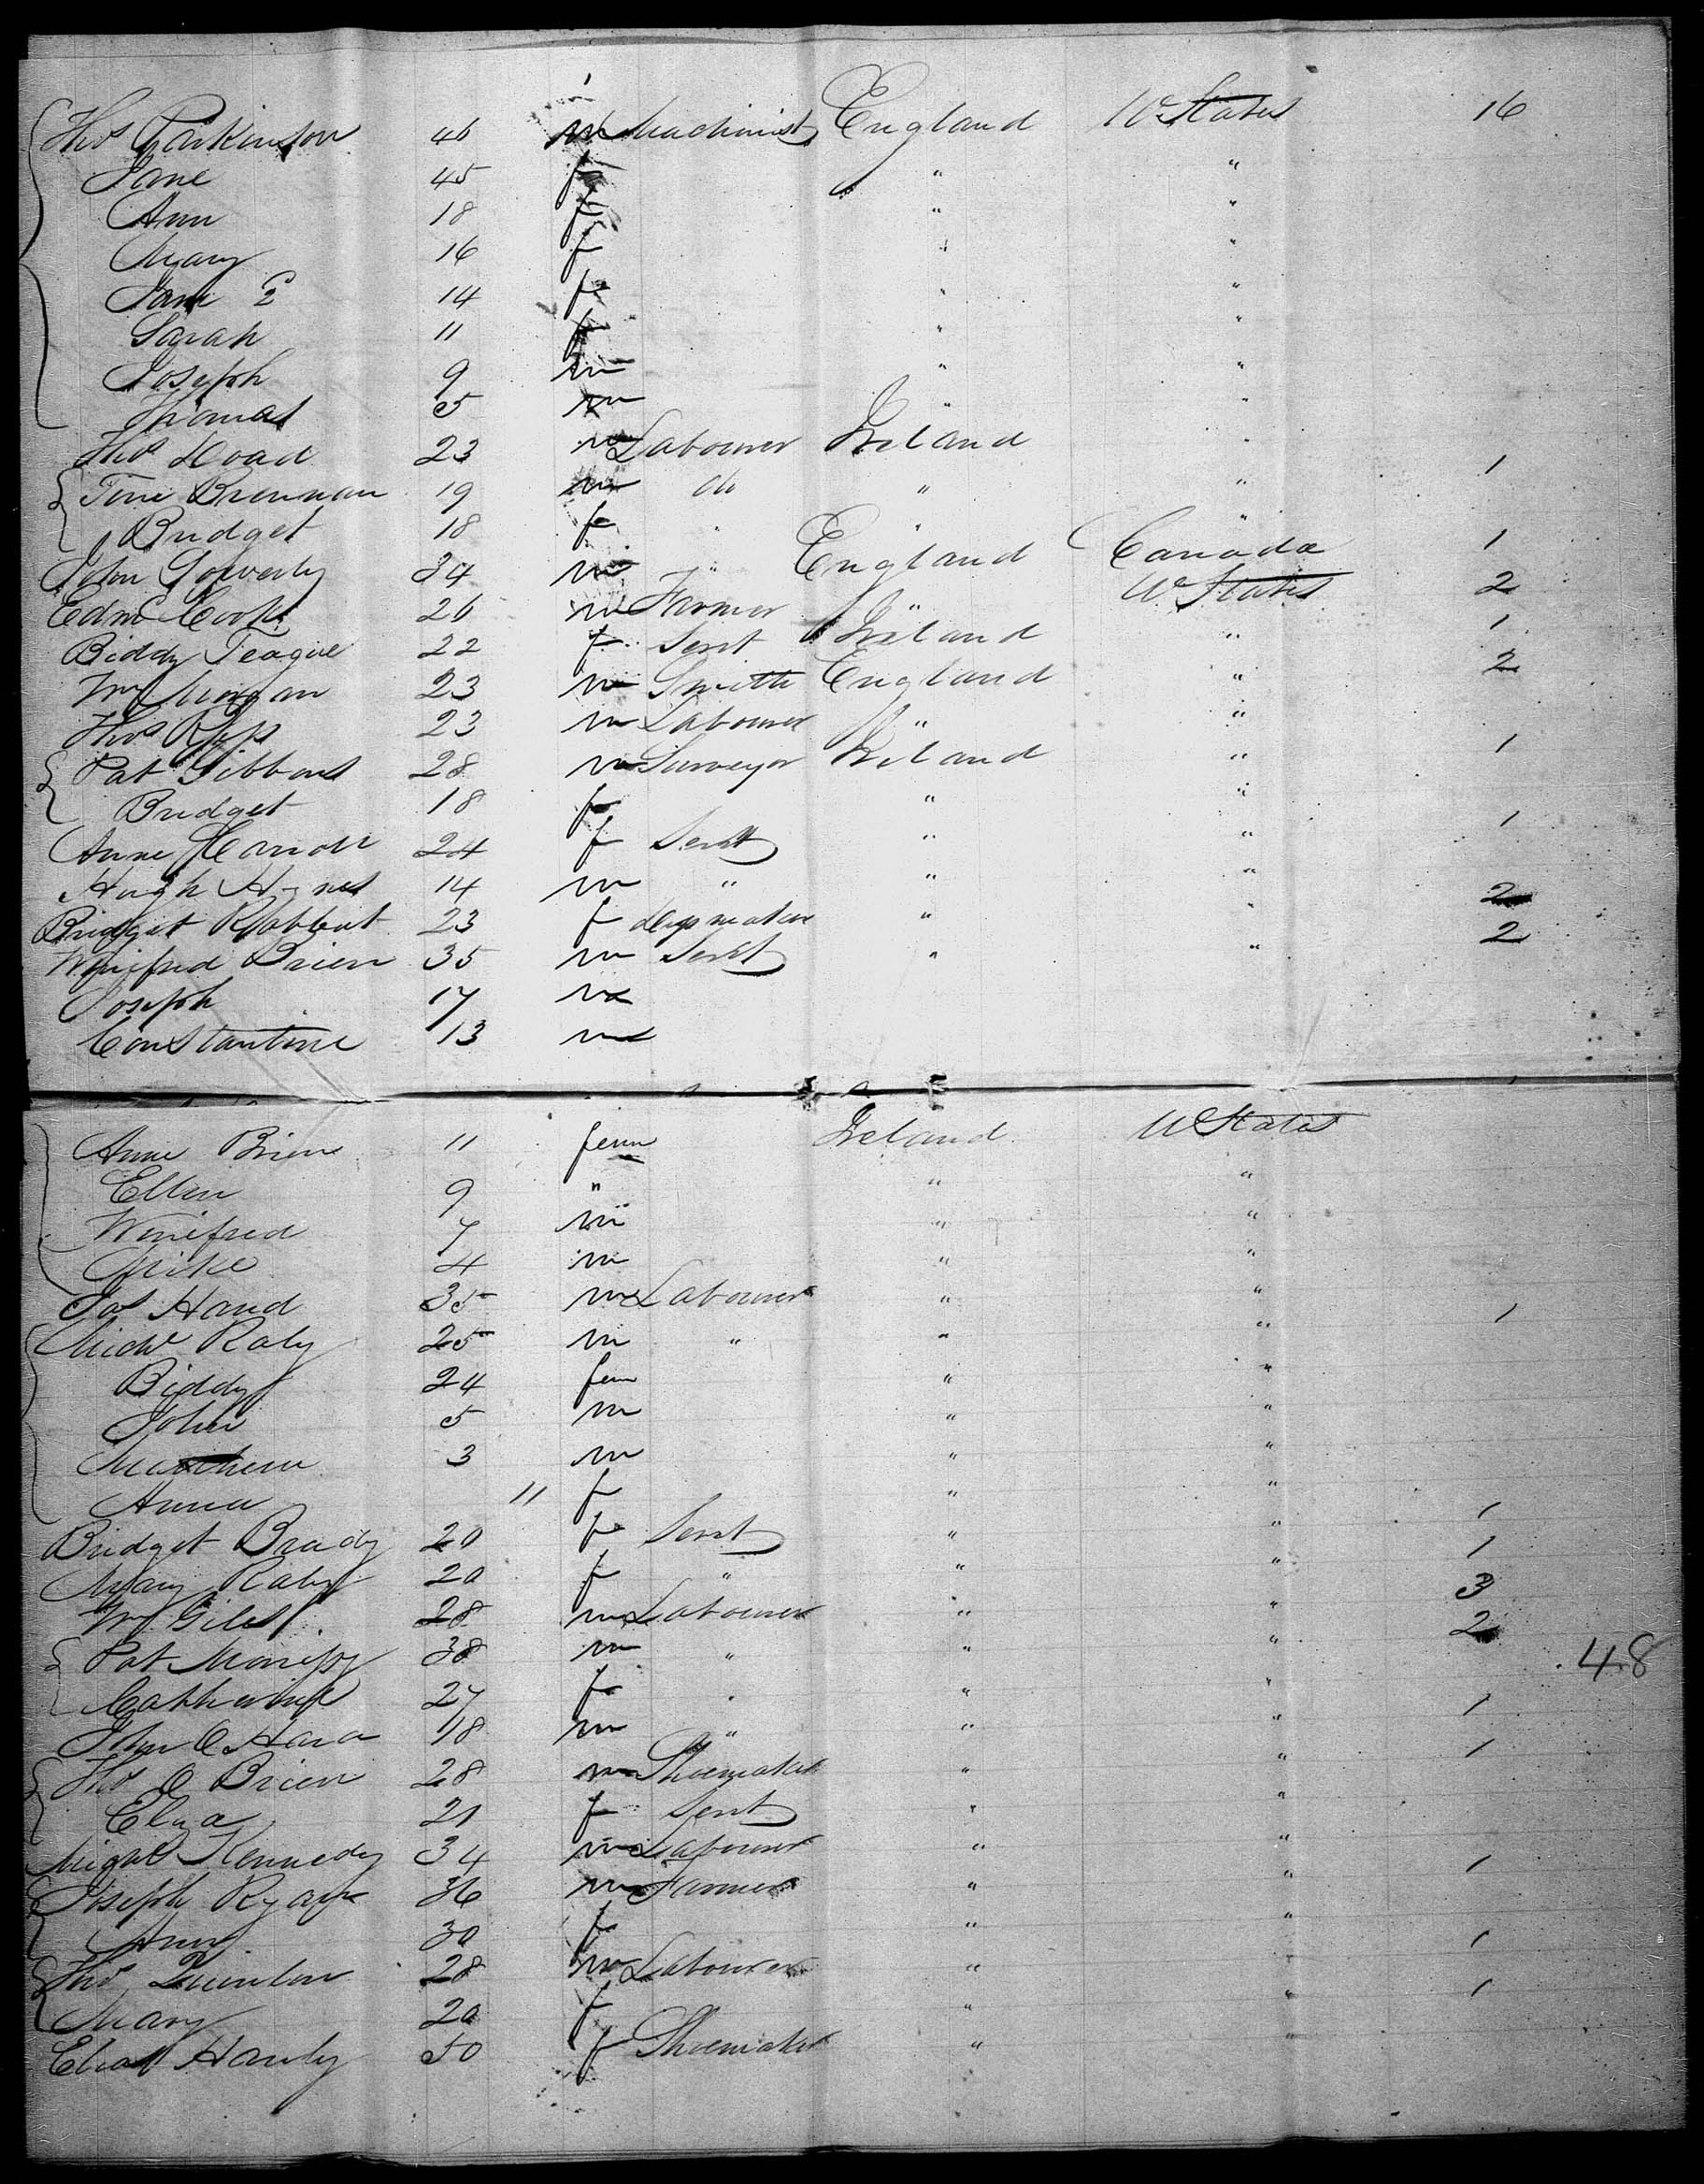 Thos Parkinson 46 m Machinist England U States 16
Jane 45 f " "
Ann 18 f " "
Mary 16 f " "
Jane E 14 f " "
Sarah 11 f " "
Joseph 9 m " "
Thomas 5 m " "
Thos Doad 23 m Labourer Ireland "
Tim Brennan 19 m do " " 1
Bridget 18 f " " "
John 34 m " England Canada 1
Edmd Cook 26 m Farmer " U States 2
Biddy Teague 22 f Servt Ireland " 1
Wm Morgan 23 m Smith England " 2
Thos 23 m Labourer " "
Pat Gibbons 28 m Surveyor Ireland " 1
Bridget 18 f " "
Anne Carroll 24 f Servt " " 1
Hugh Hynes 14 m " " "
Bridget Rabbut 23 f " " 2
Winifred Brien 35 m Servt " " 2
Joseph 17 m
Constantine 13 m
Anne Brien 11 fem Ireland U States
Ellen 9 " " "
Winifred 7 m " "
Mike 4 m " "
Jas Hand 35 m Labourer " "
Michl Raby 25 m " " " 1
Biddy 24 fem " "
John 5 m " "
Matthew 3 m " "
Anna 11 f " "
Bridget Brady 20 f Servt " " 1
Mary Raby 20 f " " " 1
Wm Giles 28 m Labourer " " 3
Pat Morissy 38 m " " " 2
48
Catherine 27 f " " "
John O Hara 18 m " " " 1
Thos O Brien 28 m Shoemaker " " 1
Eliza 21 f Servt " "
Michl Kennedy 34 m Labourer " "
Joseph Ryan 36 m Farmer " " 1
Ann 30 f " "
Thos Quinlan 28 m Labourer " " 1
Mary 20 f " " 1
Elias Hanly 50 f Shoemaker " "